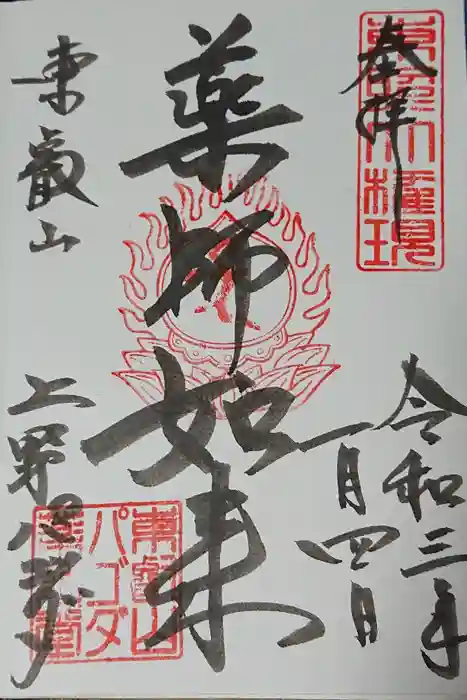 奉拝
令和三年
一月四日
薬師如来
東叡山
上野
東叡山
パゴダ